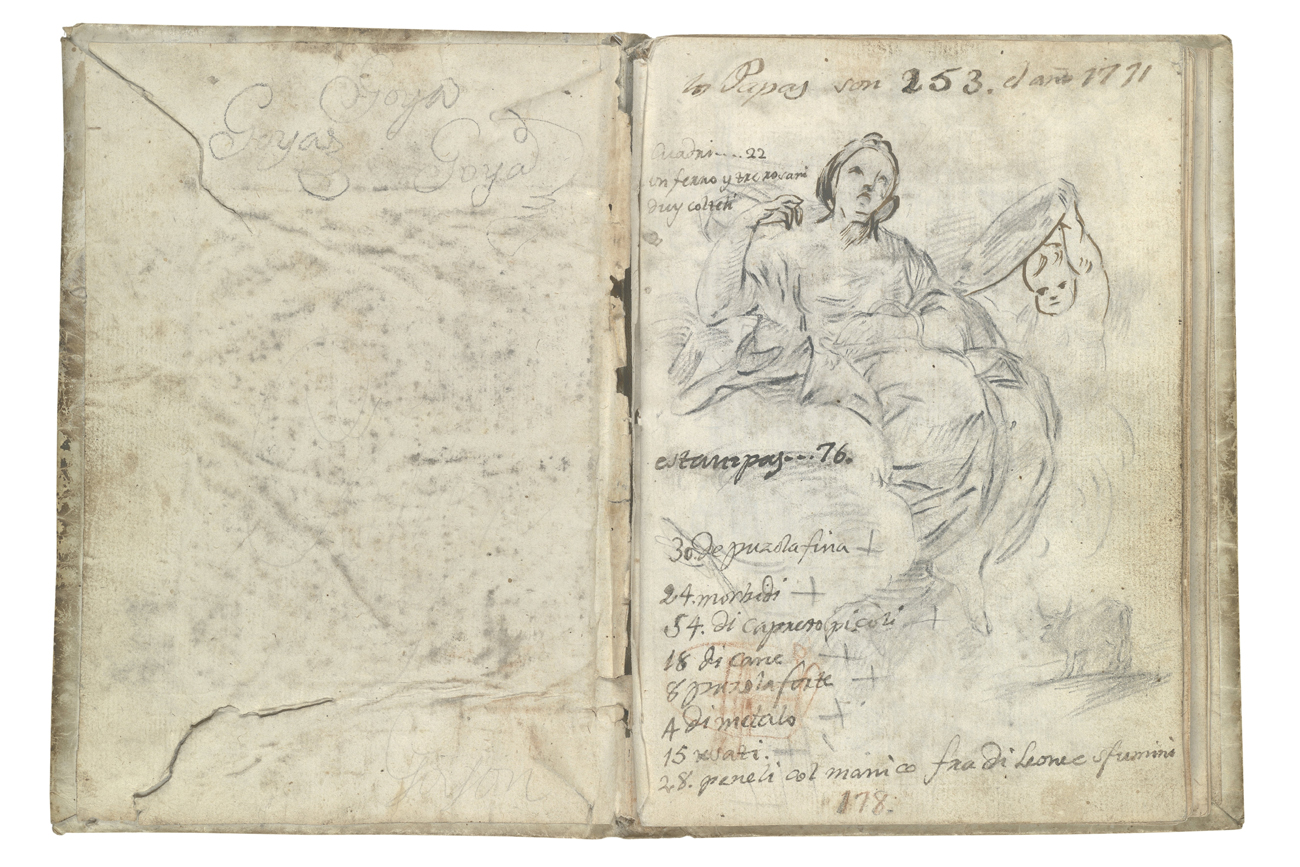 Goya
Goyas
Goya
los Papas son 253. el año 1771
Cuadri....22
y tre rosari
estampas...76.
30. de puzola fina +
24. morbidi +
54. di capreto picoli +
18 di cane +
8 puzola forte +
4 di metalo +
15 usati. +
28. peneli col manico fra di Leone e sfumini
178.